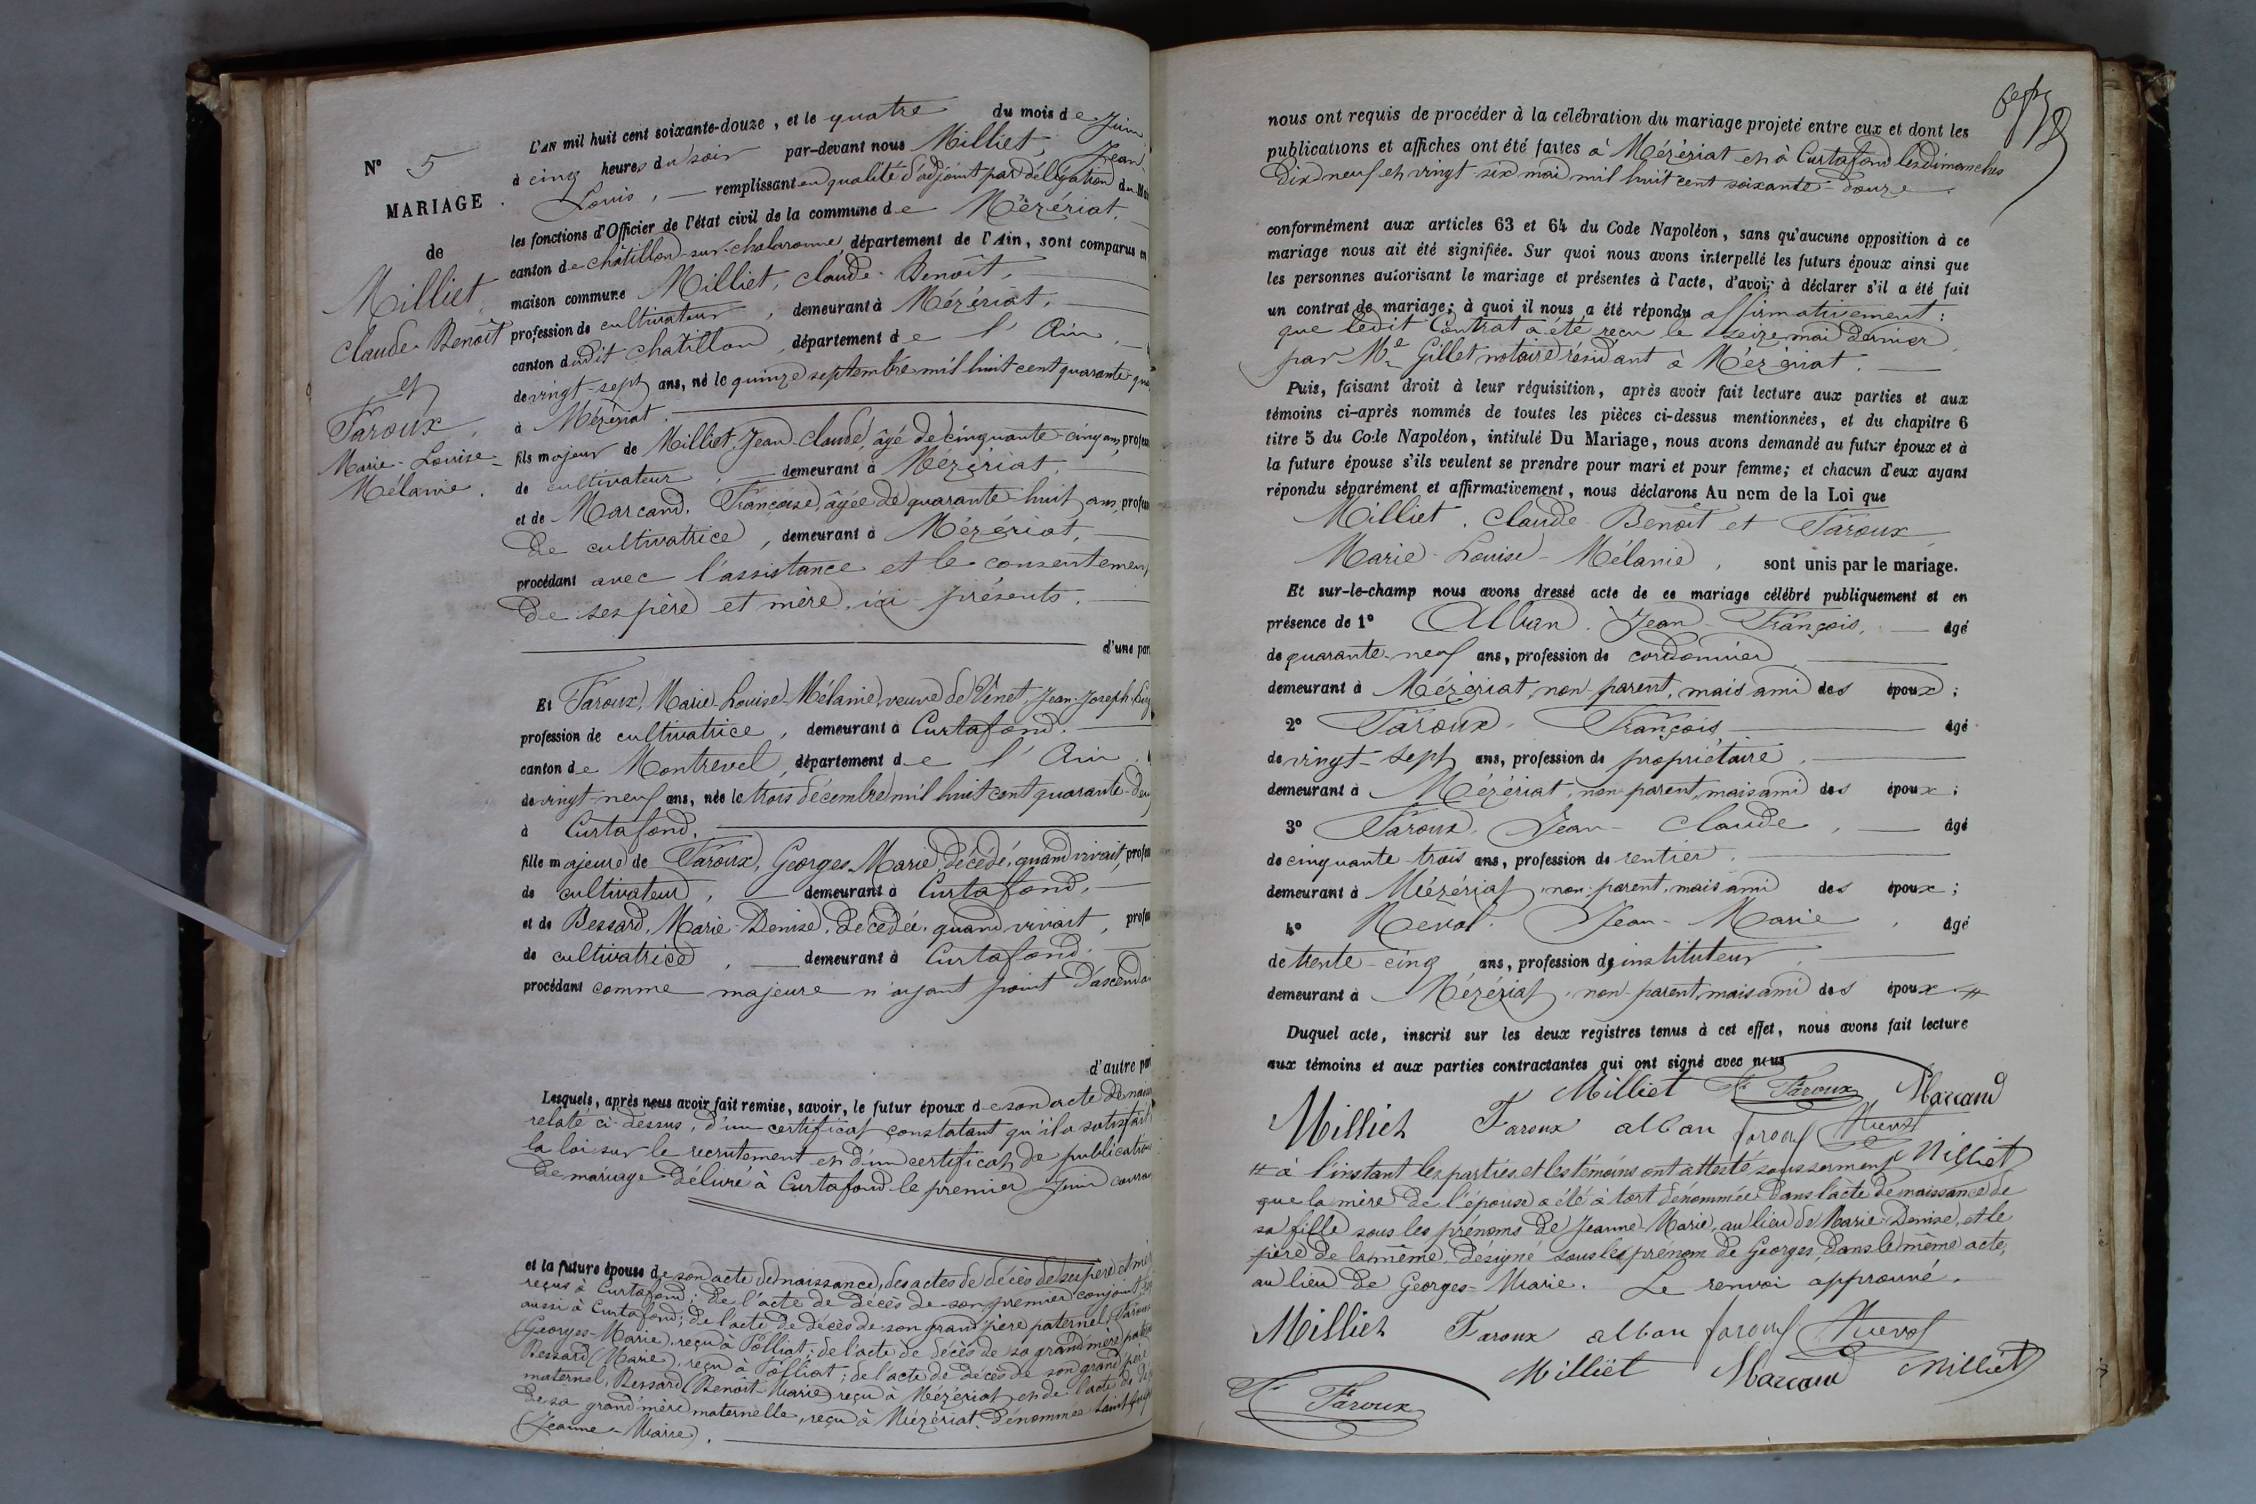 N° 5
MARIAGE
de
Milliet,
Claude-Benoît
et
Faroux,
Marie-Louise-
Mélanie.
L'AN mil huit cent soixante-douze, et le quatre du mois de Juin
à cinq heures du soir par-devant nous Milliet, Jean
Louis, remplissant en qualité d'adjoint par délégation du
les fonctions d'Officier de l'état civil de la commune de Mézériat,
canton de Châtillon-sur-Chalaronne, département de l'Ain, sont comparus en
maison commune Milliet, Claude-Benoît,
profession de cultivateur, demeurant à Mézériat,
canton dudit Châtillon, département de l'Ain,
de vingt-sept ans, né le quinze septembre mil huit cent quarante
à Mézériat.
fils majeur de Milliet, Jean-Claude, âgé de cinquante-cinq ans,
de cultivateur, demeurant à Mézériat,
et de Marcand, Françoise, âgée de quarante-huit ans,
de cultivatrice, demeurant à Mézériat,
procédant avec l'assistance et le consentement
de ses père et mère, ici présents.
d'une
Et Faroux, Marie-Louise-Mélanie, veuve de Venet, Jean-Joseph
profession de cultivatrice, demeurant à Curtafond,
canton de Montrevel, département de l'Ain,
de vingt-neuf ans, née le trois décembre mil huit cent quarante-
à Curtafond.
fille majeure de Faroux, Georges-Marie, décédé, quand vivait,
de cultivateur, demeurant à Curtafond,
et de Bessard, Marie-Denise, décédée, quand vivait,
de cultivatrice, demeurant à Curtafond
procédant comme majeure n'ayant point
d'autre
Lesquels, après nous avoir fait remise, savoir, le futur époux de son acte de
relaté ci-dessus, d'un certificat constatant qu'il a satisfait
la loi sur le recrutement et d'un certificat de
de mariage délivré à Curtafond le premier Juin
et la future épouse de son acte de naissance, des actes de décès de ses père et
reçus à Curtafond; de l'acte de décès de son premier conjoint,
aussi à Curtafond; de l'acte de décès de son grand père paternel, Faroux
(Georges-Marie), reçu à Polliat; de l'acte de décès de sa grand'mère
Bessard (Marie), reçu à Polliat; de l'acte de décès de son grand père
maternel, Bessard (Benoît-Marie) reçu à Mézériat et de l'acte de
de sa grand'mère maternelle, reçu à Mézériat, dénommée
(Jeanne-Marie).
nous ont requis de procéder à la célébration du mariage projeté entre eux et dont les
publications et affiches ont été faites à Mézériat et à Curtafond les dimanches
dix neuf et vingt-six mai mil huit cent soixante-douze.
conformément aux articles 63 et 64 du Code Napoléon, sans qu'aucune opposition à ce
mariage nous ait été signifiée. Sur quoi nous avons interpellé les futurs époux ainsi que
les personnes autorisant le mariage et présentes à l'acte, d'avoir à déclarer s'il a été fait
un contrat de mariage; à quoi il nous a été répondu affirmativement;
que ledit Contrat a été reçu le seize mai dernier
par Me Gillet notaire résidant à Mézériat.
Puis, faisant droit à leur réquisition, après avoir fait lecture aux parties et aux
témoins ci-après nommés de toutes les pièces ci-dessus mentionnées, et du chapitre 6
titre 5 du Code Napoléon, intitulé Du Mariage, nous avons demandé au futur époux et à
la future épouse s'ils veulent se prendre pour mari et pour femme; et chacun d'eux ayant
répondu séparément et affirmativement, nous déclarons Au nom de la Loi que
Milliet, Claude-Benoît et Faroux,
Marie-Louise-Mélanie, sont unis par le mariage.
Et sur-le-champ nous avons dressé acte de ce mariage célébré publiquement et en
présence de 1° Alban, Jean-François, âgé
de quarante-neuf ans, profession de cordonnier,
demeurant à Mézériat, non parent, mais ami des époux;
2° Faroux, François âgé
de vingt-sept ans, profession de propriétaire,
demeurant à Mézériat, non parent, mais ami des époux;
3° Faroux, Jean-Claude, âgé
de cinquante trois ans, profession de rentier,
demeurant à Mézériat, non parent, mais ami des époux;
4° Revol, Jean-Marie, âgé
de trente-cinq ans, profession de instituteur,
demeurant à Mézériat, non-parent, mais ami des époux #
Duquel acte, inscrit sur les deux registres tenus à cet effet, nous avons fait lecture
aux témoins et aux parties contractantes qui ont signé avec nous
Milliet Fs Faroux Marcand
Milliet Faroux alban faroux Revol
Milliet
# à l'instant les parties et les témoins ont attesté sous serment
que la mère de l'épouse a été à tort dénommée dans l'acte de naissance de
sa fille sous les prénoms de Jeanne-Marie, au lieu de Marie-Denise, et le
père de la même, désigné sous les prénom de Georges, dans le même acte,
au lieu de Georges-Marie. Le renvoi approuvé.
Milliet Faroux alban faroux Revol
Milliet Marcand Milliet
Fs Faroux